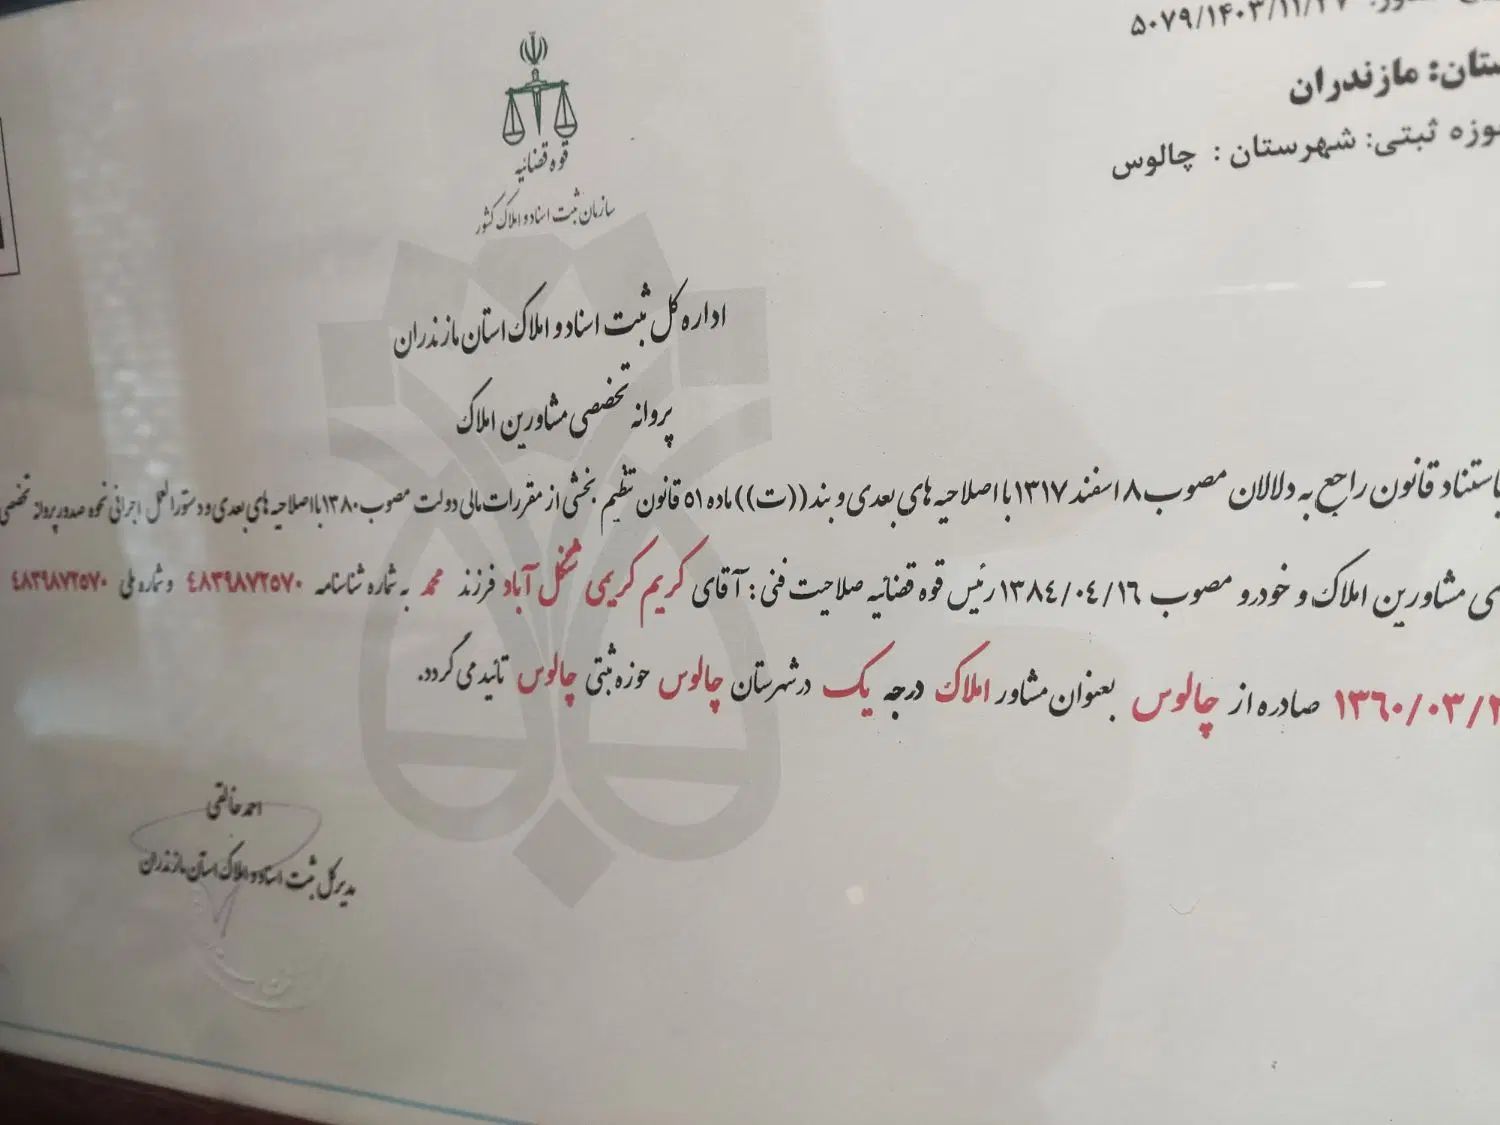 ۵۰۷۹/۱۴۰۳/۱۱/۲۷
ستان: مازندران
وزه ثبتی: شهرستان : چالوس
قوه قضائیه
سازمان ثبت اسناد و املاک کشور
اداره کل ثبت اسناد و املاک استان مازندران
پروانه تخصصی مشاورین املاک
باستناد قانون راجع به دلالان مصوب ۸ اسفند ۱۳۱۷ با اصلاحیه های بعدی و بند ((ت)) ماده ۵۱ قانون تنظیم بخشی از مقررات مالی دولت مصوب ۱۳۸۰ با اصلاحیه های بعدی و دستورالعمل اجرائی نحوه صدور پروانه تخصصی
ی مشاورین املاک و خودرو مصوب ۱۳۸٤/۰٤/۱٦ رئیس قوه قضائیه صلاحیت فنی : آقای کریم کریمی شکل آباد فرزند محمد به شماره شناسنامه ٤۸۳۹۸۷۲۵۷۰ و شماره ملی ٤۸۳۹۸۷۲۵۷۰
۱۳٦۰/۰۳/۲ صادره از چالوس بعنوان مشاور املاک درجه یک در شهرستان چالوس حوزه ثبتی چالوس تائید می گردد.
احمد خالقی
مدیر کل ثبت اسناد و املاک استان مازندران